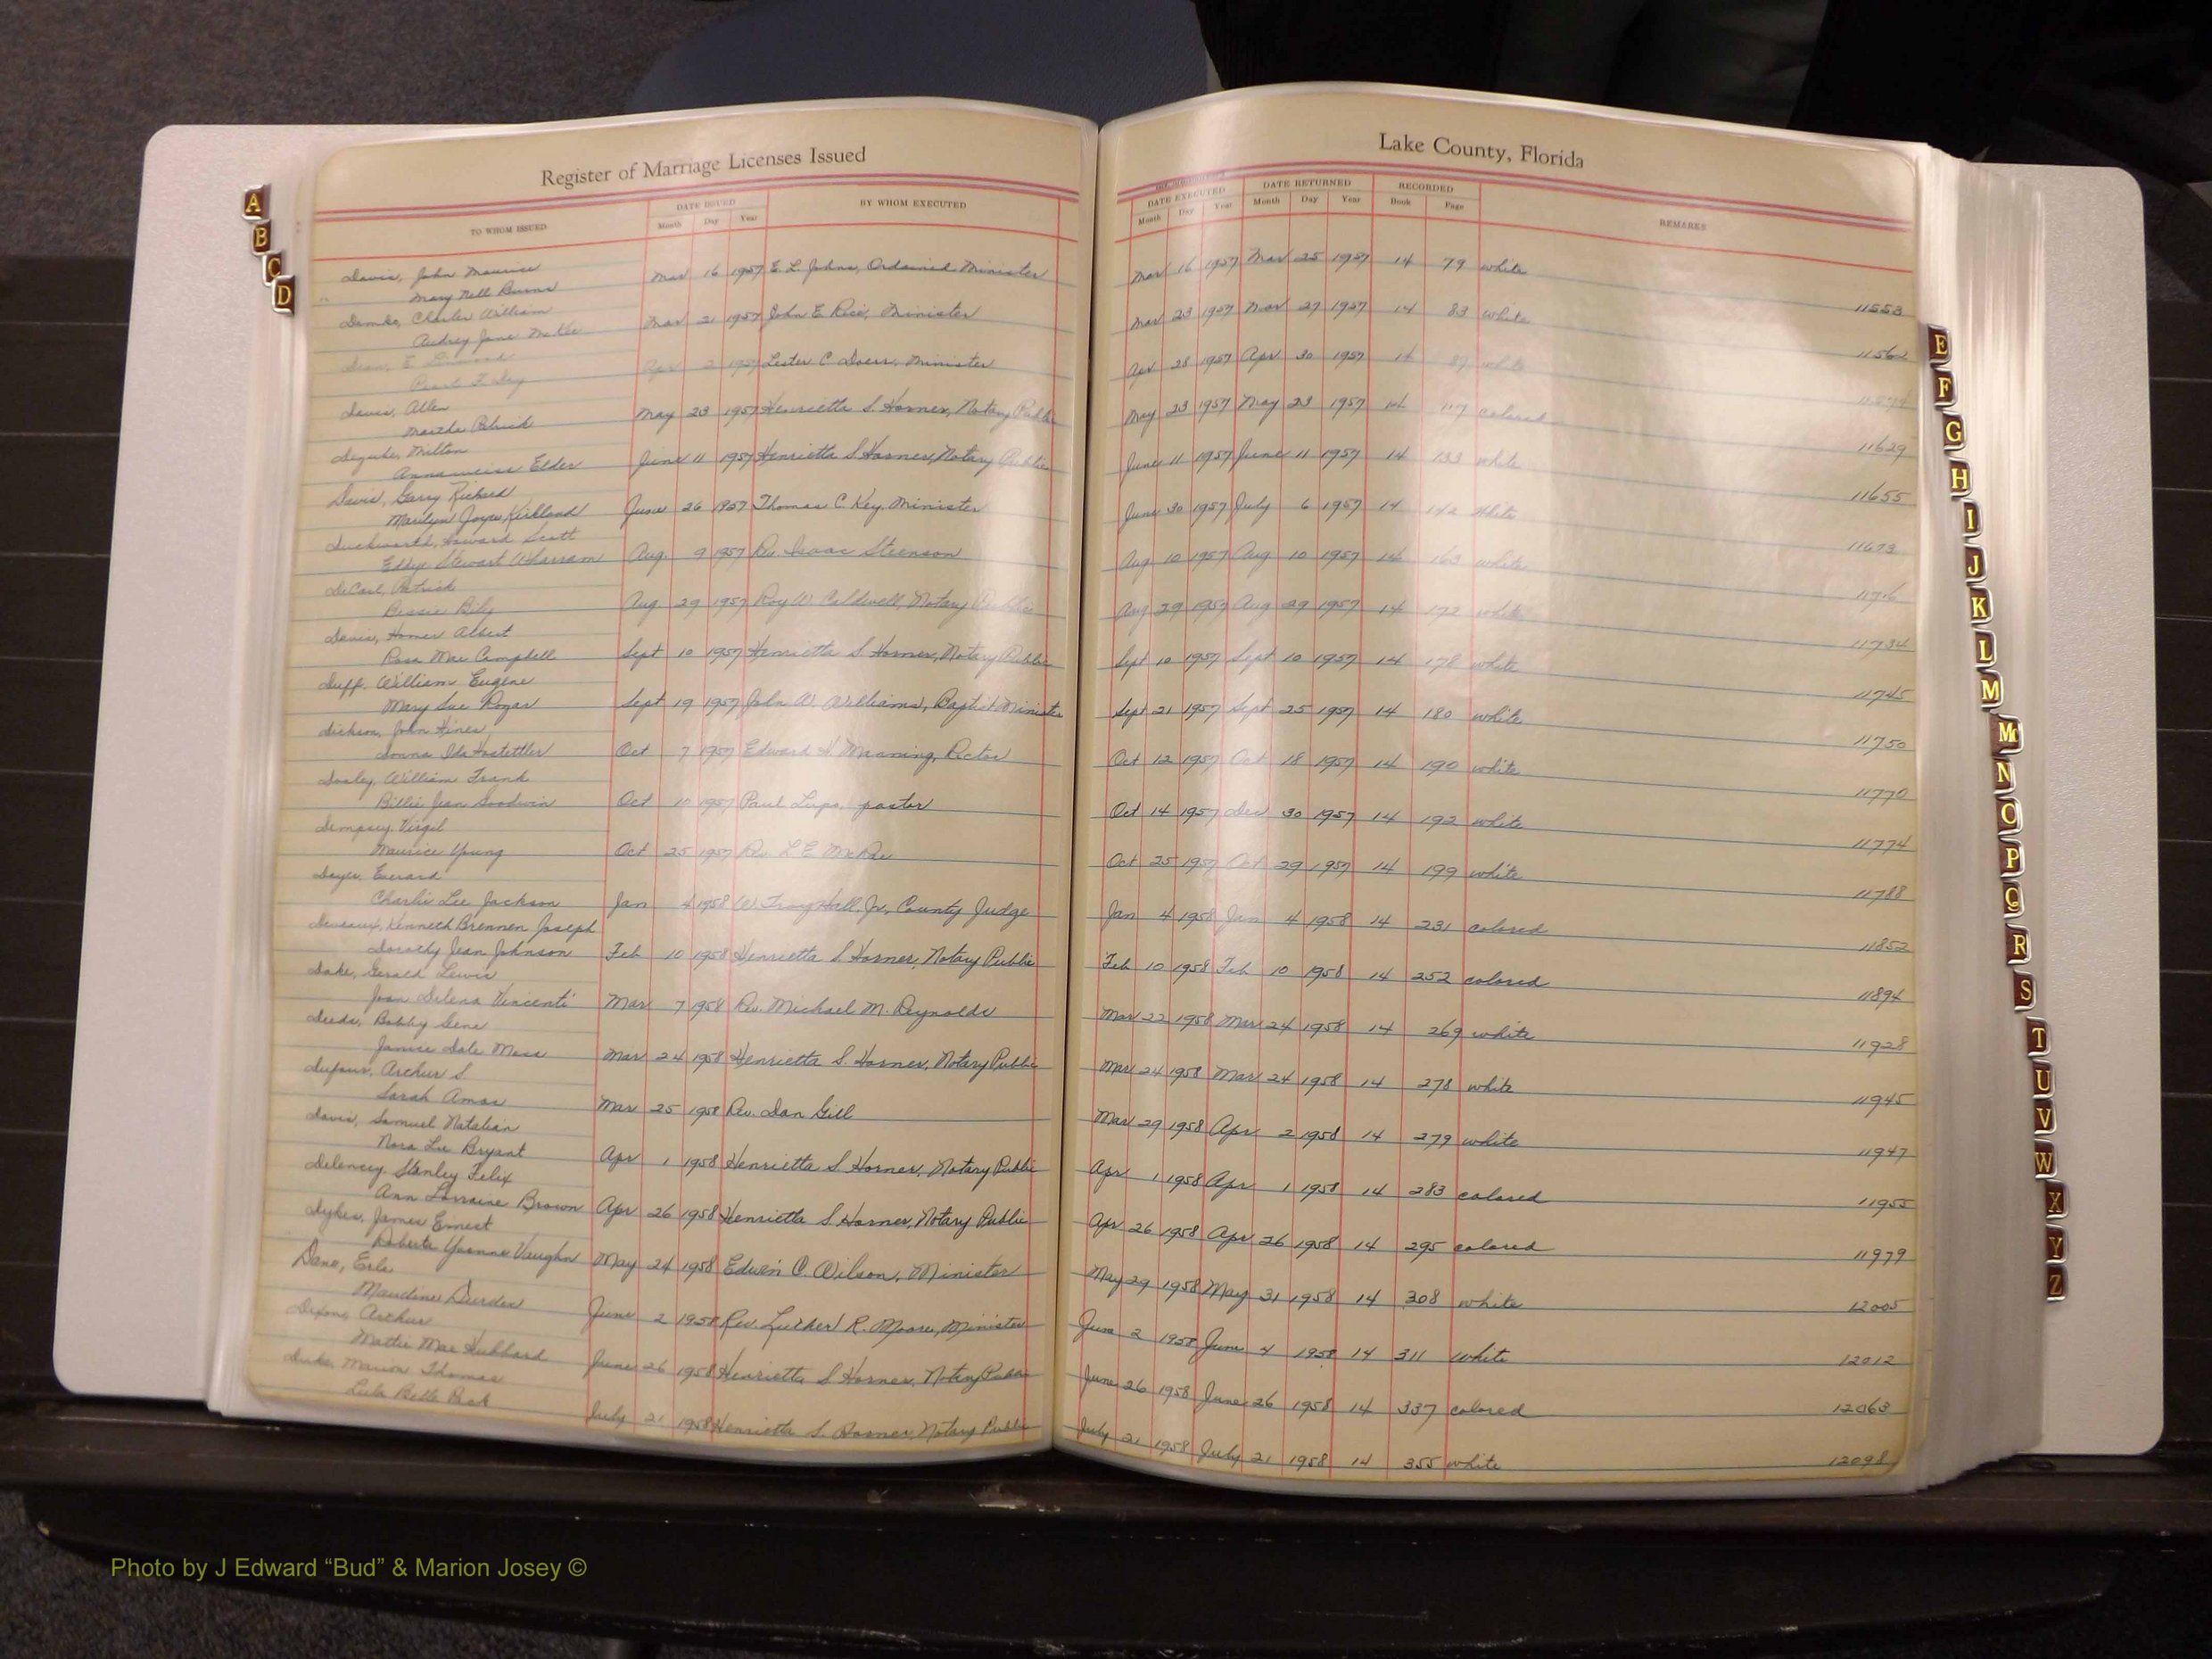 Register of Marriage Licenses Issued
Lake County, Florida
TO WHOM ISSUED DATE ISSUED BY WHOM EXECUTED DATE EXECUTED DATE RETURNED RECORDED REMARKS
Month Day Year Month Day Year Month Day Year Book Page
Davis, John Maurice
Mary Nell Burns Mar 16 1957 E. L. Johns, Ordained Minister Mar 16 1957 Mar 25 1957 14 79 white 11553
Charles William
Audrey Jane McKee Mar 21 1957 John E. Rice, Minister Mar 23 1957 Mar 27 1957 14 83 white 11562
Dean, E.
Pearl F. Apr 2 1957 Lester C Doerr, Minister Apr 28 1957 Apr 30 1957 14 white
Davis, Allen
Martha May 23 1957 Henrietta S. Horner, Notary Public May 23 1957 May 23 1957 14 colored 11629
Milton
Elder June 11 1957 Henrietta S. Horner, Notary Public June 11 1957 June 11 1957 14 133 white 11655
Davis, Garry Richard
Marilyn Joyce Kirkland June 26 1957 Thomas C. Key, Minister June 30 1957 July 6 1957 14 142 white 11673
Duckworth, Howard Scott
Eddy Stewart Wharram Aug 9 1957 Rev. Isaac Steenson Aug 10 1957 Aug 10 1957 14 163 white 11716
DeCarl, Patrick
Bessie Aug 29 1957 Roy W. Caldwell, Notary Public Aug 29 1957 Aug 29 1957 14 172 white 11734
Davis, Homer Albert
Rosa Mae Campbell Sept 10 1957 Henrietta S. Horner, Notary Public Sept 10 1957 Sept 10 1957 14 178 white 11745
Duff, William Eugene
Mary Sue Sept 19 1957 John W. Williams, Baptist Minister Sept 21 1957 Sept 25 1957 14 180 white 11750
Dickson, John Hines
Donna Ida Hostettler Oct 7 1957 Edward H. Manning, Rector Oct 12 1957 Oct 18 1957 14 190 white 11770
William Frank
Billie Jean Goodwin Oct 10 1957 Paul pastor Oct 14 1957 Dec 30 1957 14 192 white 11774
Dempsey, Virgil
Maurice Young Oct 25 1957 Rev. L E McRae Oct 25 1957 Oct 29 1957 14 199 white 11788
Charlie Lee Jackson Jan 4 1958 W. Troy Hall, Jr., County Judge Jan 4 1958 Jan 4 1958 14 231 colored 11852
Deveaux, Kenneth Brennen Joseph
Dorothy Jean Johnson Feb 10 1958 Henrietta S. Horner, Notary Public Feb 10 1958 Feb 10 1958 14 252 colored 11894
Dake, Gerald Lewis
Joan Delena Vincenti Mar 7 1958 Rev. Michael M. Reynolds Mar 22 1958 Mar 24 1958 14 269 white 11928
Deeds, Bobby Gene
Janice Dale Moss Mar 24 1958 Henrietta S. Horner, Notary Public Mar 24 1958 Mar 24 1958 14 278 white 11945
Dufour, Arthur S.
Sarah Amos Mar 25 1958 Rev. Dan Gill Mar 29 1958 Apr 2 1958 14 279 white 11947
Davis, Samuel Natalian
Nora Lee Bryant Apr 1 1958 Henrietta S. Horner, Notary Public Apr 1 1958 Apr 1 1958 14 283 colored 11955
Delancey, Stanley Felix
Ann Lorraine Brown Apr 26 1958 Henrietta S. Horner, Notary Public Apr 26 1958 Apr 26 1958 14 295 colored 11979
Dykes, James Ernest
Roberta Yvonne Vaughn May 24 1958 Edwin C. Wilson, Minister May 29 1958 May 31 1958 14 308 white 12005
Dane, Erle
Maudine Durden June 2 1958 Rev. Luther R. Moore, Minister June 2 1958 June 4 1958 14 311 white 12012
Dixon, Arthur
Mattie Mae Hubbard June 26 1958 Henrietta S. Horner, Notary Public June 26 1958 June 26 1958 14 337 colored 12063
Duke, Marion Thomas
Lula Belle July 21 1958 Henrietta S. Horner, Notary Public July 21 1958 July 21 1958 14 355 white 12098
A
B
C
D
E
F
G
H
I
J
K
L
M
Mc
N
O
P
Q
R
S
T
U
V
W
X
Y
Z
Photo by J Edward “Bud” & Marion Josey ©